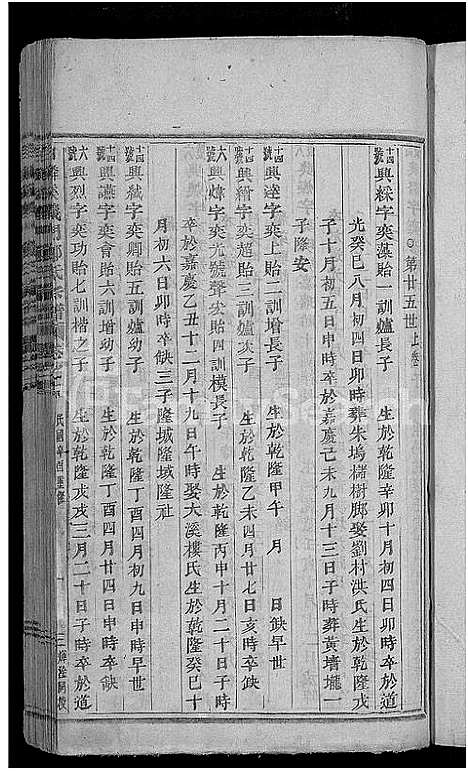 第廿五世上
十四號興綵字奕藻貽一訓爐長子 生於乾隆辛卯十月初四日卯時卒於道
光癸巳八月初四日卯時葬朱塢櫧樹脚娶劉村洪氏生於乾隆戊
子十月初五日申時卒於嘉慶己未九月十三日子時葬黃墻壠一
子隆安
十四號興逵字奕上貽二訓增長子 生於乾隆甲午 月 日缺早世
十四號興縉字奕超貽三訓爐次子 生於乾隆乙未四月廿七日亥時卒缺
六號興煒字奕光號聲宏貽四訓模長子 生於乾隆丙申十月二十日子時
卒於嘉慶乙丑十二月十九日午時娶大溪樓氏生於乾隆癸巳十
月初六日卯時卒缺三子隆城隆域隆社
十四號興絨字奕卿貽五訓爐幼子 生於乾隆丁酉四月初九日申時早世
十四號興燕字奕會貽六訓增幼子 生於乾隆丁酉四月廿四日申時卒缺
六號興烈字奕功貽七訓楷之子 生於乾隆戊戌三月二十日子時卒於道